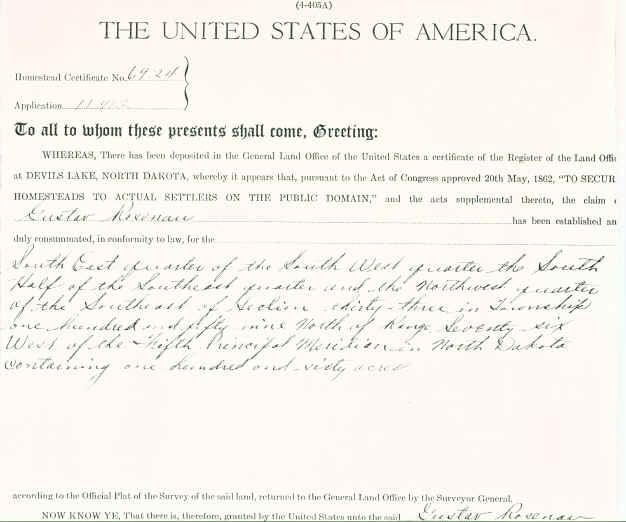 (4-405A)
THE UNITED STATES OF AMERICA.
Homestead Certificate No. 6924
Application
To all to whom these presents shall come, Greeting:
WHEREAS, There has been deposited in the General Land Office of the United States a certificate of the Register of the Land Offic
at DEVILS LAKE, NORTH DAKOTA, whereby it appears that, pursuant to the Act of Congress approved 20th May, 1862, "TO SECUR
HOMESTEADS TO ACTUAL SETTLERS ON THE PUBLIC DOMAIN," and the acts supplemental thereto, the claim o
Gustav Rosenau has been established an
duly consummated, in conformity to law, for the
South East quarter of the South West quarter the South
Half of the Southeast quarter and the Northwest quarter
of the Southeast of Section thirty-three in Township
one hundred and fifty nine North of Range Seventy-six
West of the Fifth Principal Meridian in North Dakota
containing one hundred and sixty acres
according to the Official Plat of the Survey of the said land, returned to the General Land Office by the Surveyor General.
NOW KNOW YE, That there is, therefore, granted by the United States unto the said Gustav Rosenau